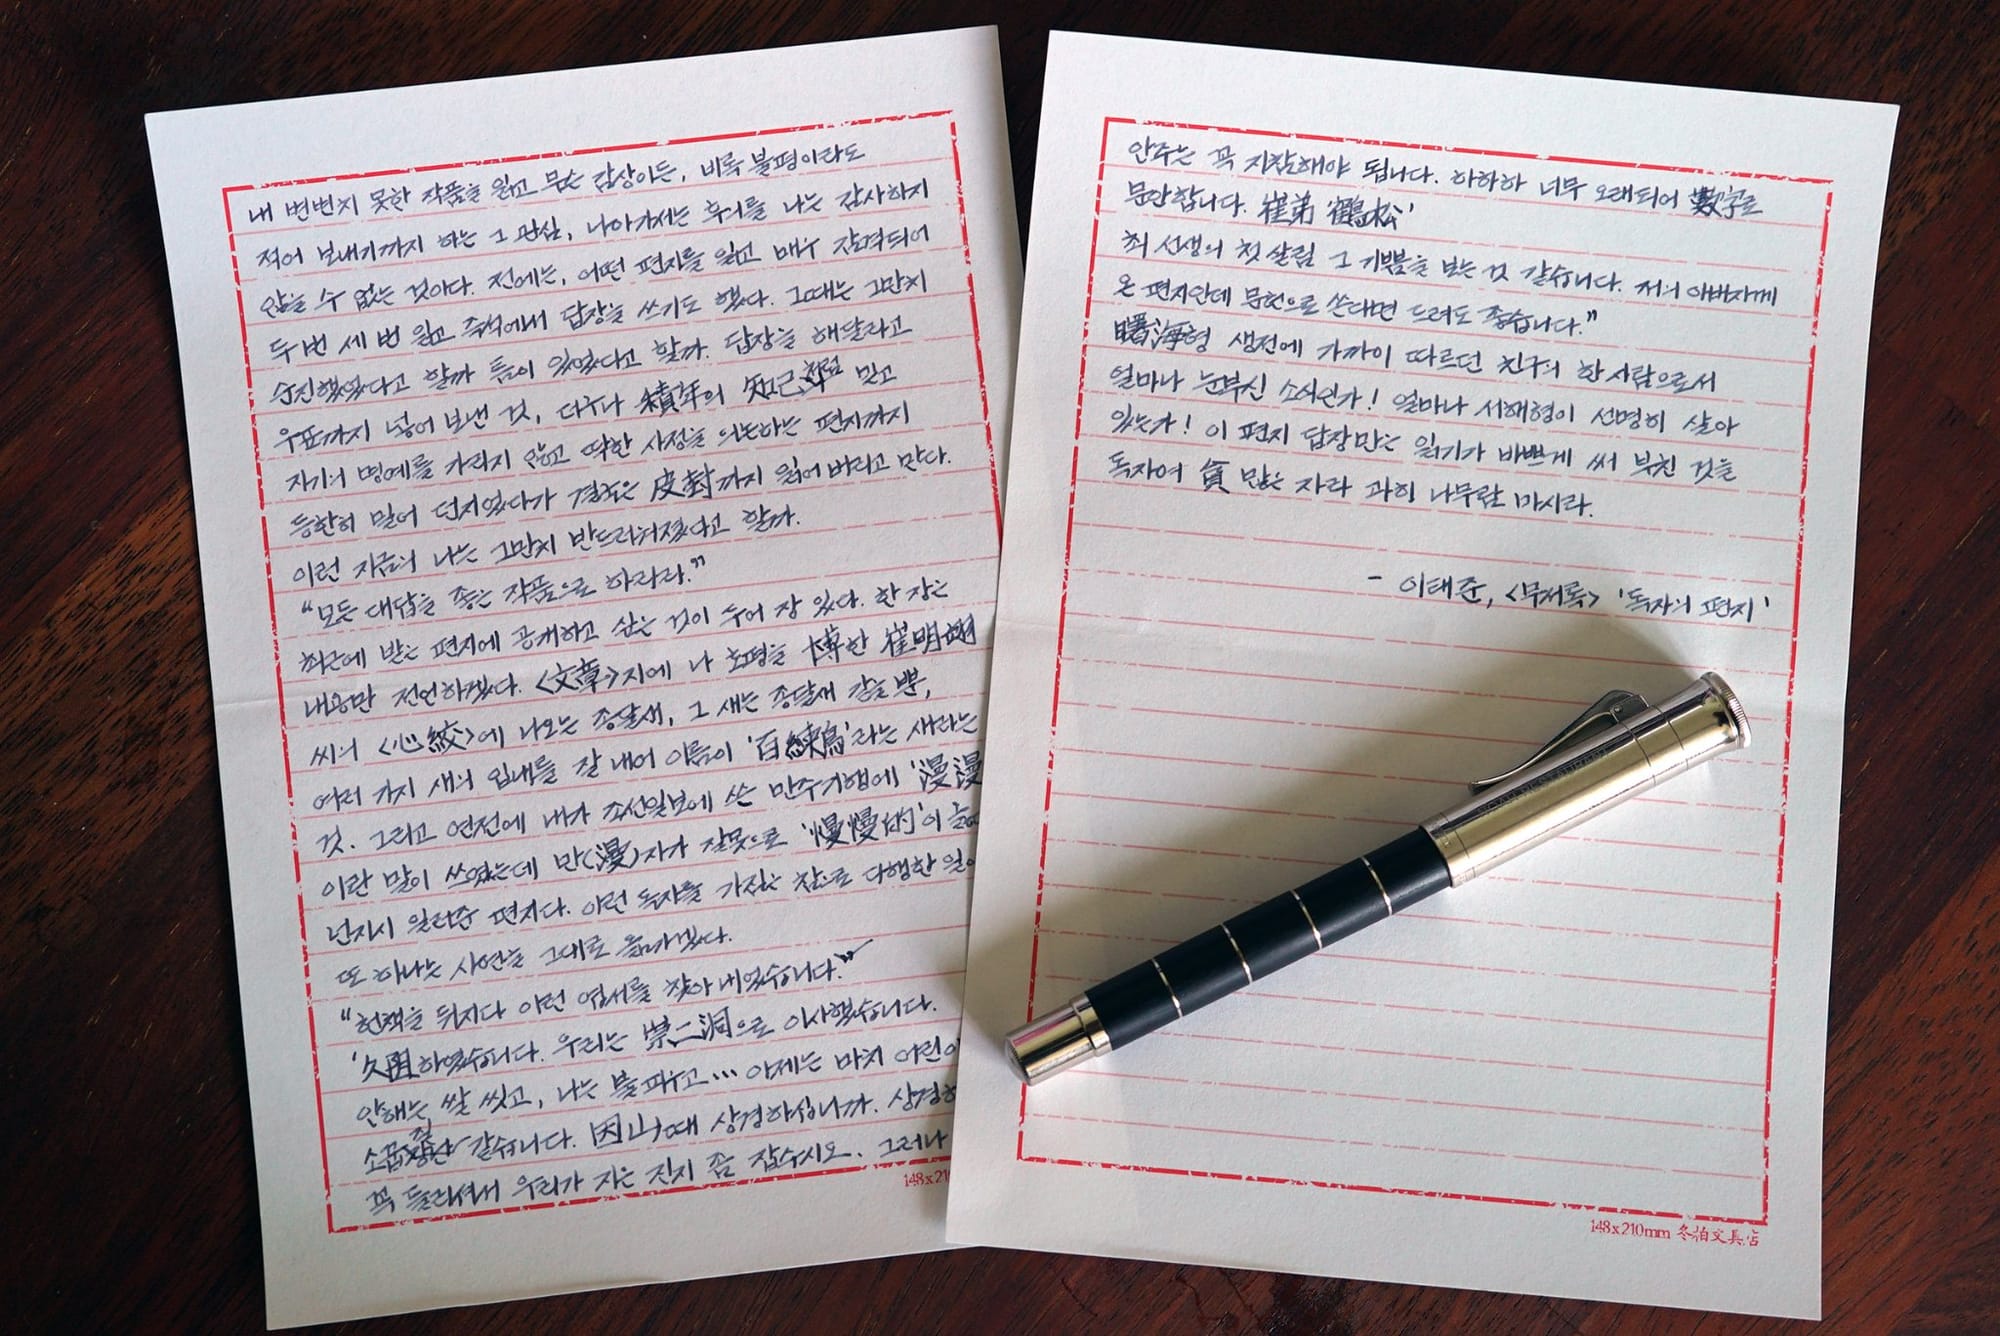 내 변변치 못한 작품을 읽고 무슨 감상이든, 비록 불평이라도
적어 보내기까지 하는 그 관심, 나아가서는 후의를 나는 감사하지
않을 수 없는 것이다. 전에는, 어떤 편지를 읽고 매우 감격되어
두 번 세 번 읽고 즉석에서 답장을 쓰기도 했다. 그때는 그만치
순진했었다고 할까 틈이 있었다고 할까. 답장을 해달라고
우표까지 넣어 보낸 것, 더구나 積年의 知己처럼 믿고
자기의 명예를 가리지 않고 딱한 사정을 의논하는 편지까지
등한히 밀어 던지었다가 결국은 皮封까지 잃어 버리고 만다.
이런 지금의 나는 그만치 반드러워졌다고 할까.
“모든 대답을 좋은 작품으로 하리라.”
최근에 받은 편지에 공개하고 싶은 것이 두어 장 있다. 한 장은
내용만 전언하겠다. <文章>지에 나 호평을 博한 崔明翊
씨의 <心紋>에 나오는 종달새, 그 새는 종달새 같을 뿐,
여러 가지 새의 입내를 잘 내어 이름이 '百鍊鳥'라는 새라는
것. 그리고 연전에 내가 조선일보에 쓴 만주기행에 '漫漫
이란 말이 쓰였는데 만(漫)자가 잘못으로 '慢慢的'이 옳
넌지시 일러준 편지다. 이런 독자를 가짐은 참으로 다행한 일
또 하나는 사연을 그대로 옮기겠다.
“헌책을 뒤지다 이런 엽서를 찾아내었습니다.”
'久阻하였습니다. 우리는 崇二洞으로 이사했습니다.
안해는 쌀 씻고, 나는 불 피우고… 이제는 마치 어린
소꿉질 같습니다. 因山때 상경하십니까. 상경하
꼭 들리셔서 우리가 지은 진지 좀 잡수시오. 그러나
148x21
안주는 꼭 지참해야 됩니다. 하하하 너무 오래되어 數字로
문안합니다. 崔弟 鶴松'
최 선생의 첫 살림 그 기쁨을 보는 것 같습니다. 저의 아버지께
온 편지인데 문헌으로 쓴다면 드려도 좋습니다.”
曙海형 생전에 가까이 따르던 친구의 한 사람으로서
얼마나 눈부신 소식인가! 얼마나 서해형이 선명히 살아
있는가! 이 편지 답장만은 읽기가 바쁘게 써 부친 것을
독자여 貪 많은 자라 과히 나무람 마시라.
- 이태준, <무서록> '독자의 편지'
148x210mm 冬柏文具店